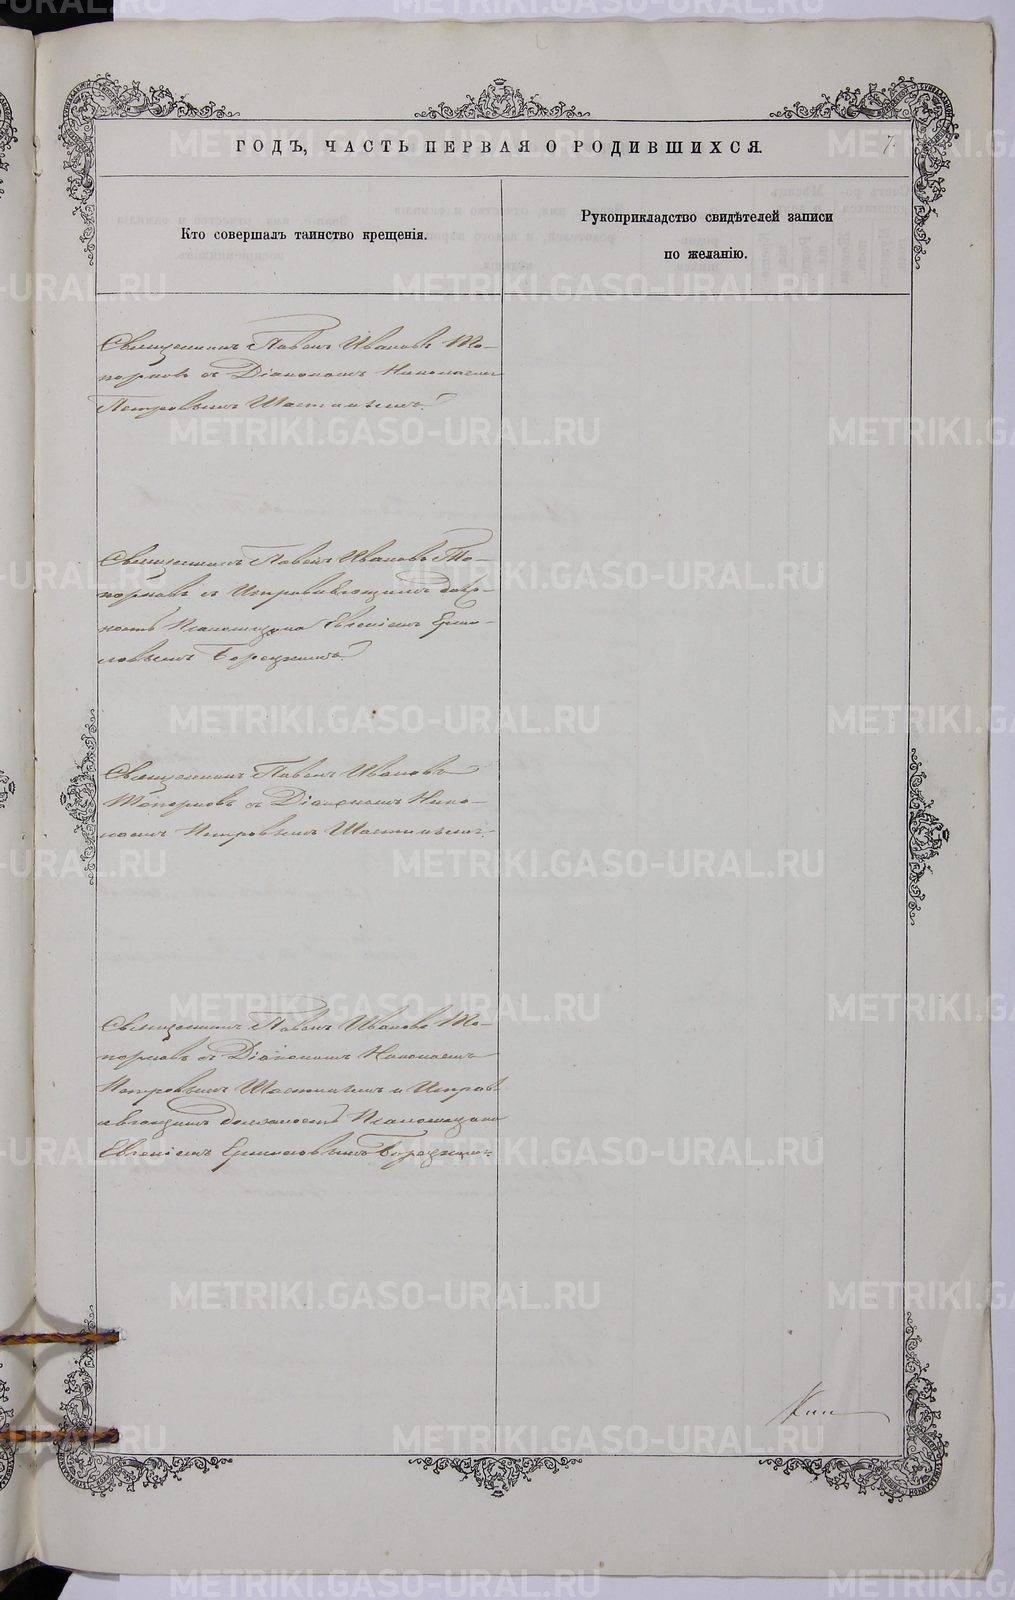 ГОДЪ, ЧАСТЬ ПЕРВАЯ О РОДИВШИХСЯ.
7.
Кто совершалъ таинство крещенія.
Рукоприкладство свидѣтелей записи
по желанію.
Священникъ Павелъ Ивановъ То-
порковъ съ Діакономъ Николаемъ
Петровымъ
Священникъ Павелъ Ивановъ То-
порковъ съ Исправляющимъ долж-
ность Псаломщика Евгеніемъ Ермо-
ловымъ
Священникъ Павелъ Ивановъ
Топорковъ съ Діакономъ Нико-
лаемъ Петровымъ
Священникъ Павелъ Ивановъ То-
порковъ съ Діакономъ Николаемъ
Петровымъ и Исправ-
ляющимъ должность Псаломщика
Евгеніемъ Ермоловымъ
METRIKI.GASO-URAL.RU